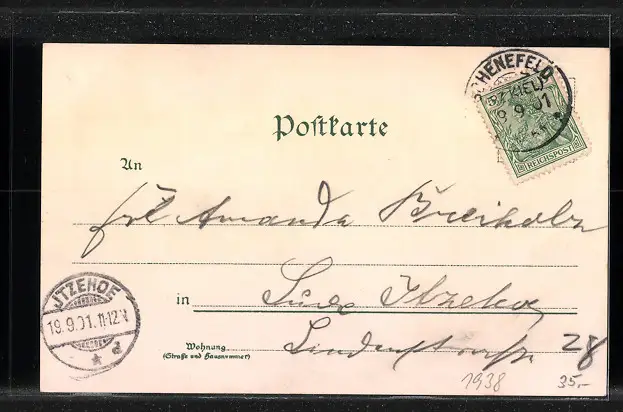 SCHENEFELD
(BZ. KIEL)
9 01
REICHSPOST
Postkarte
An
Frl Amanda Breiholz
ITZEHOE
19.9.01. 11-12V
in Itzehoe
Wohnung.
(Straße und Hausnummer)
Lindenstrasse 28
1938
35.-